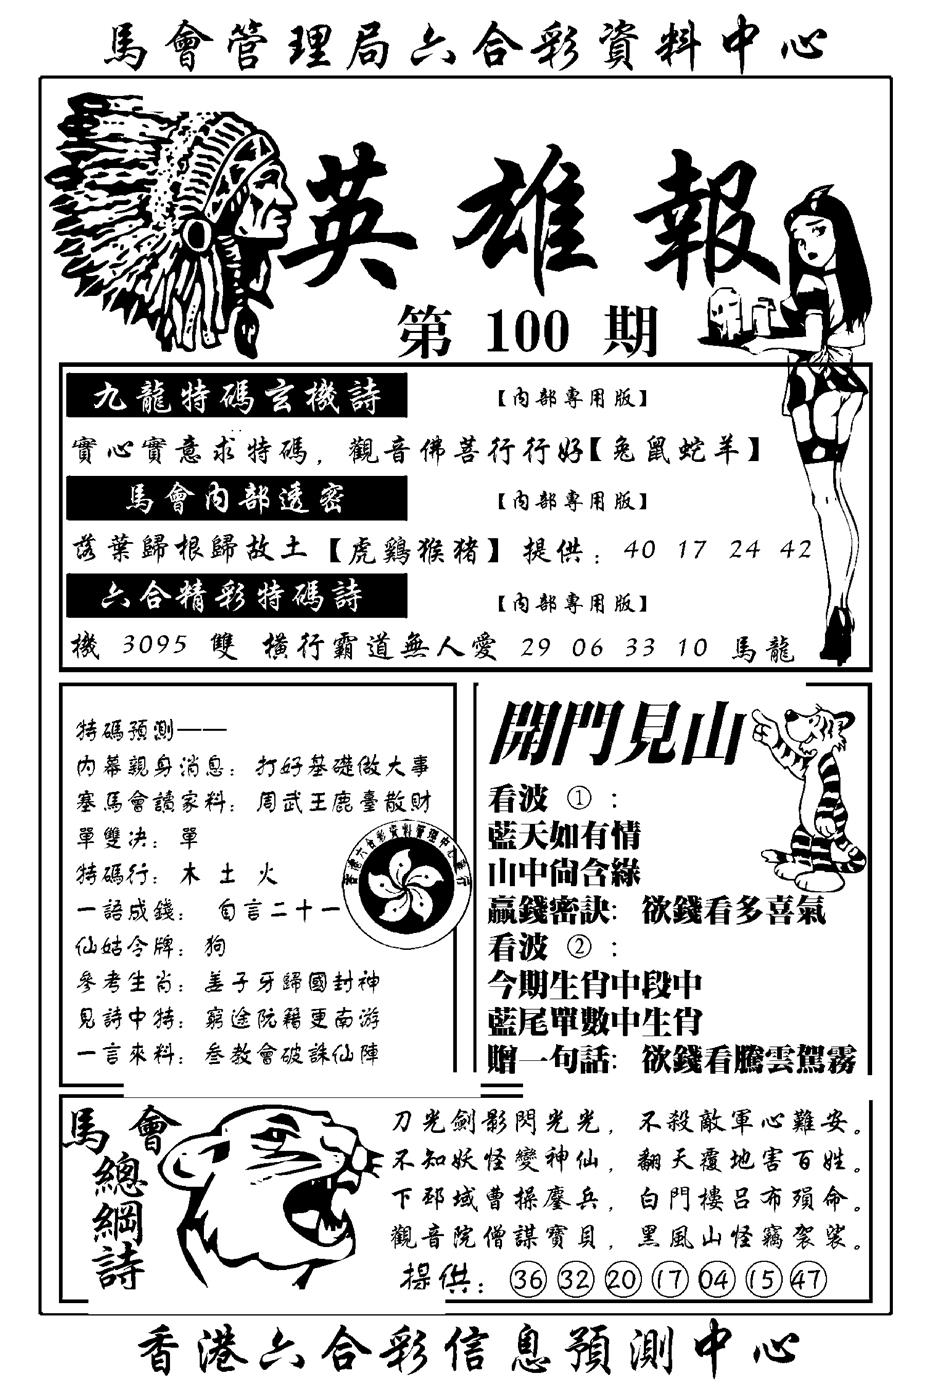 馬會管理局六合彩資料中心
英雄報
第 100 期
九龍特碼玄機詩 【內部專用版】
實心實意求特碼，觀音佛菩行行好【兔鼠蛇羊】
馬會內部透密 【內部專用版】
落葉歸根歸故土【虎鷄猴猪】提供：40 17 24 42
六合精彩特碼詩 【內部專用版】
機 3095 雙 橫行霸道無人愛 29 06 33 10 馬龍
特碼預測——
內幕親身消息：打好基礎做大事
塞馬會讀家料：周武王鹿臺散財
單雙决：單
特碼行：木 土 火
一語成錢：旬言二十一
仙姑令牌：狗
參考生肖：姜子牙歸國封神
見詩中特：窮途阮籍更南游
一言來料：叁教會破誅仙陣
香港六合彩資料管理中心發行
開門見山
看波 ①：
藍天如有情
山中尚含綠
贏錢密訣：欲錢看多喜氣
看波 ②：
今期生肖中段中
藍尾單數中生肖
贈一句話：欲錢看騰雲駕霧
馬會
總綱詩
刀光劍影閃光光，不殺敵軍心難安。
不知妖怪變神仙，翻天覆地害百姓。
下邳域曹操鏖兵，白門樓呂布殞命。
觀音院僧謀寶貝，黑風山怪竊袈裟。
提供：㊱ ㉜ ⑳ ⑰ 04 ⑮ ㊼
香港六合彩信息預測中心